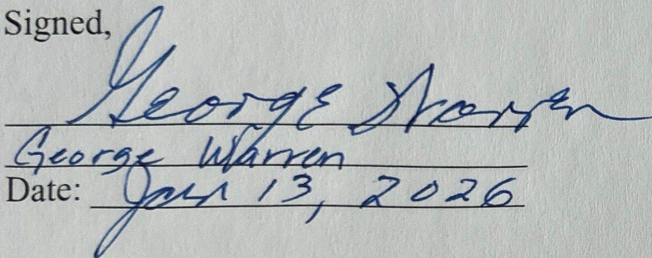 Signed,
George Warren
George Warren
Date: Jan 13, 2026